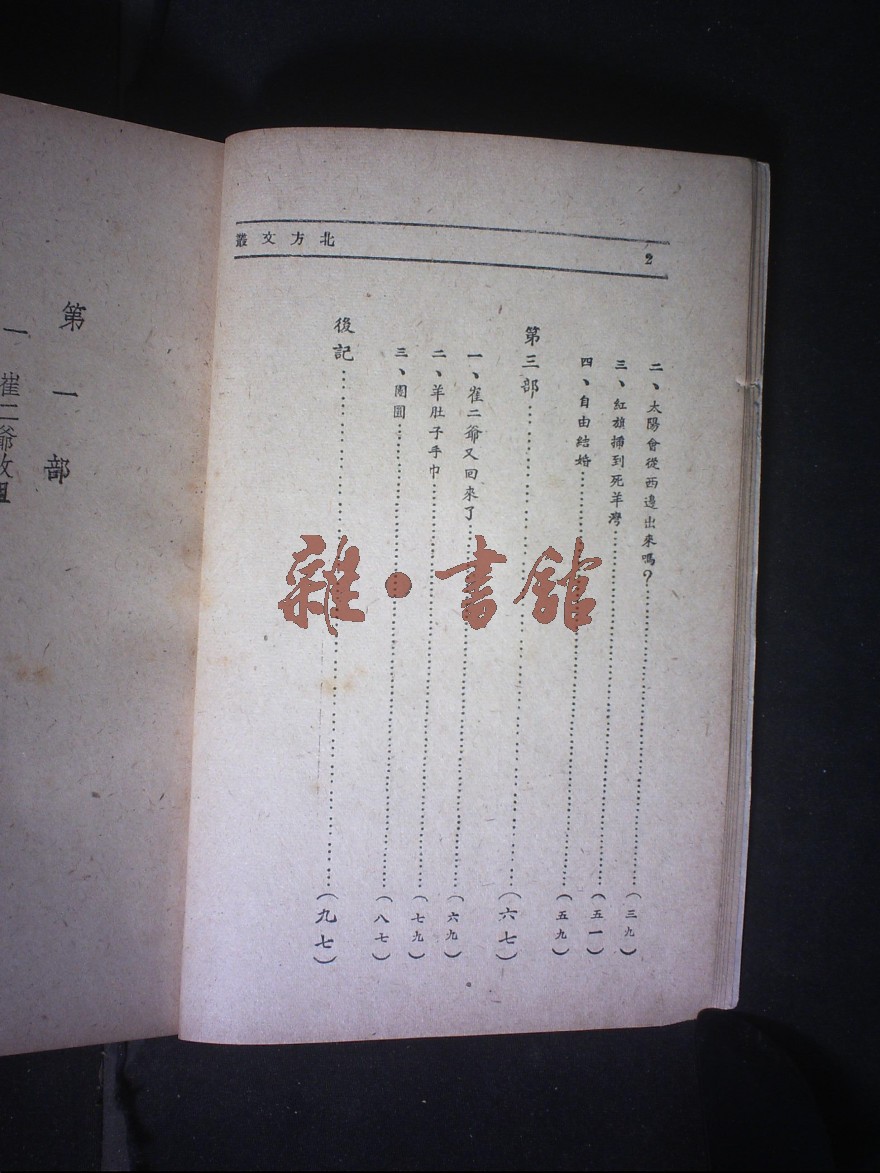 北方文叢
2
二、太陽會從西邊出來嗎?……(三九)
三、紅旗插到死羊灣……(五一)
四、自由結婚……(五九)
第三部……(六七)
一、崔二爺又回來了……(六九)
二、羊肚子手巾……(七九)
三、團圓……(八七)
後記……(九七)
雜·書館
第一部
一 崔二爺收租